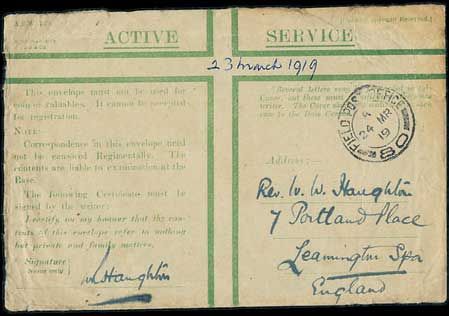 ACTIVE SERVICE
23 March 1919
This envelope must not be used for
coin or valuables. It cannot be accepted
for registration.
NOTE:—
Correspondence in this envelope need
not be censored Regimentally. The
contents are liable to examination at the
Base.
The following Certificate must be
signed by the writer:—
I certify on my honour that the con-
tents of this envelope refer to nothing
but private and family matters.
Signature
(Name only)
Haughton
Several letters
Cover, but these must
writer. The Cover
case to the Base
FIELD POST OFFICE
A
24 MR
19
80
Address:—
Rev. W. W. Haughton
7 Portland Place
Leamington Spa
England